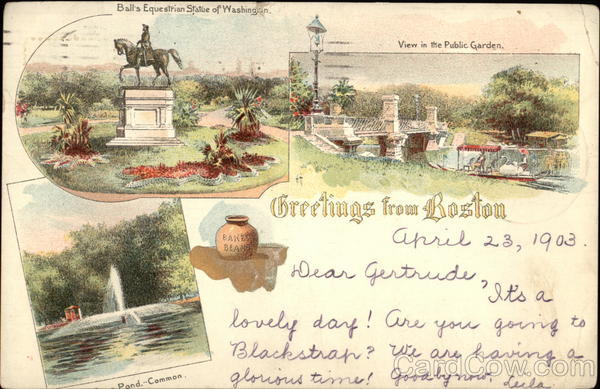 Ball's Equestrian Statue of Washington.
View in the Public Garden.
Greetings from Boston
BAKED
BEANS
April 23, 1903.
Dear Gertrude,
It's a
lovely day! Are you going to
Blackstrap? We are having a
glorious time! Goodby now, Lula
Pond.-Common.
CardCow.com